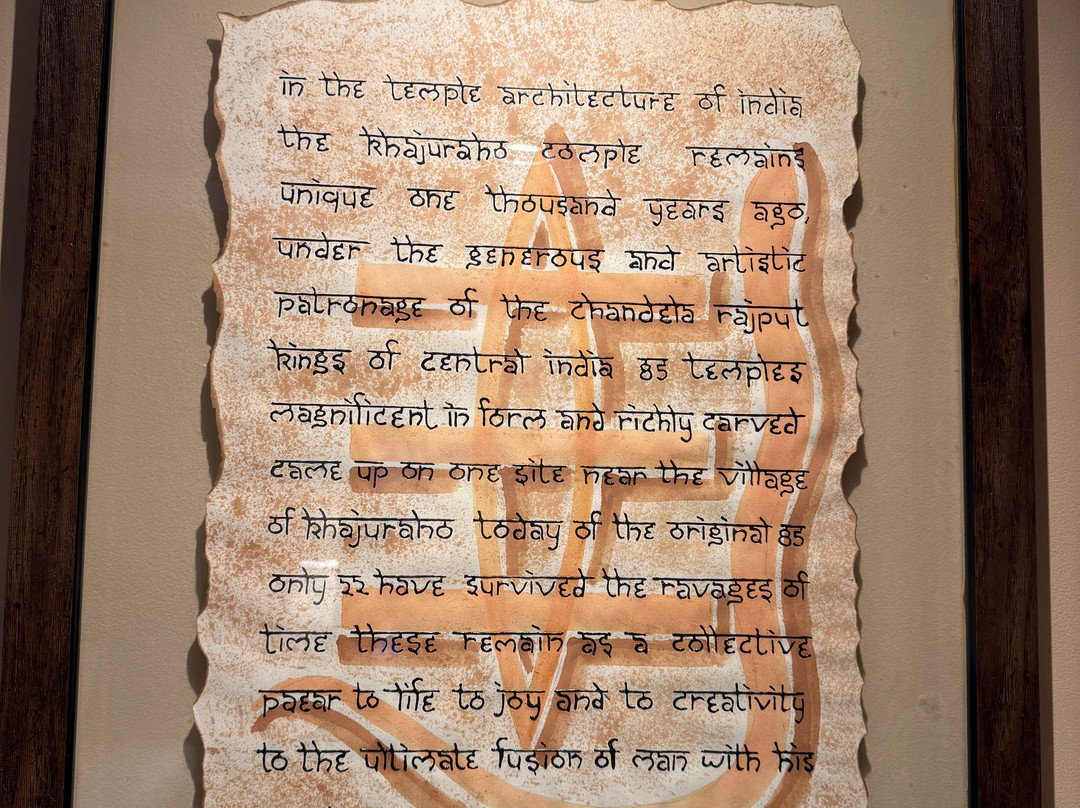 in the temple architecture of india
the khajuraho comple remains
unique one thousand years ago,
under the generous and artistic
patronage of the chandela rajput
kings of central india 85 temples
magnificent in form and richly carved
came up on one site near the village
of khajuraho today of the original 85
only 22 have survived the ravages of
time these remain as a collective
paear to life to joy and to creativity
to the ultimate fusion of man with his